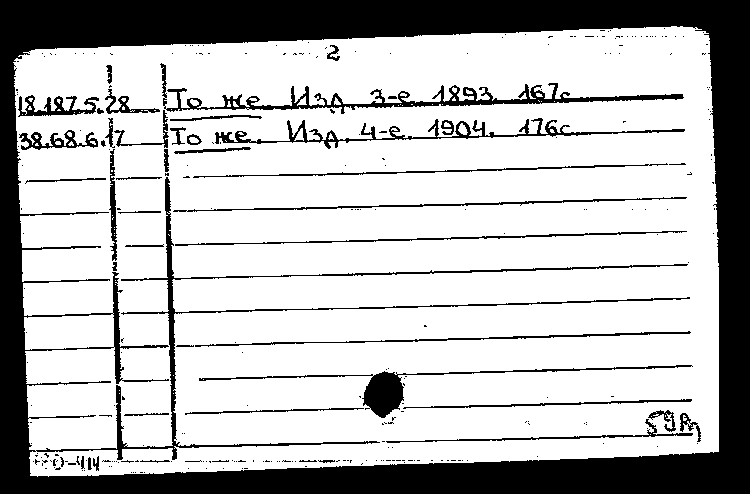 2
18.187.5.28 То же. Изд. 3-е. 1893. 167с.
38.68.6.17 То же. Изд. 4-е. 1904. 176с.